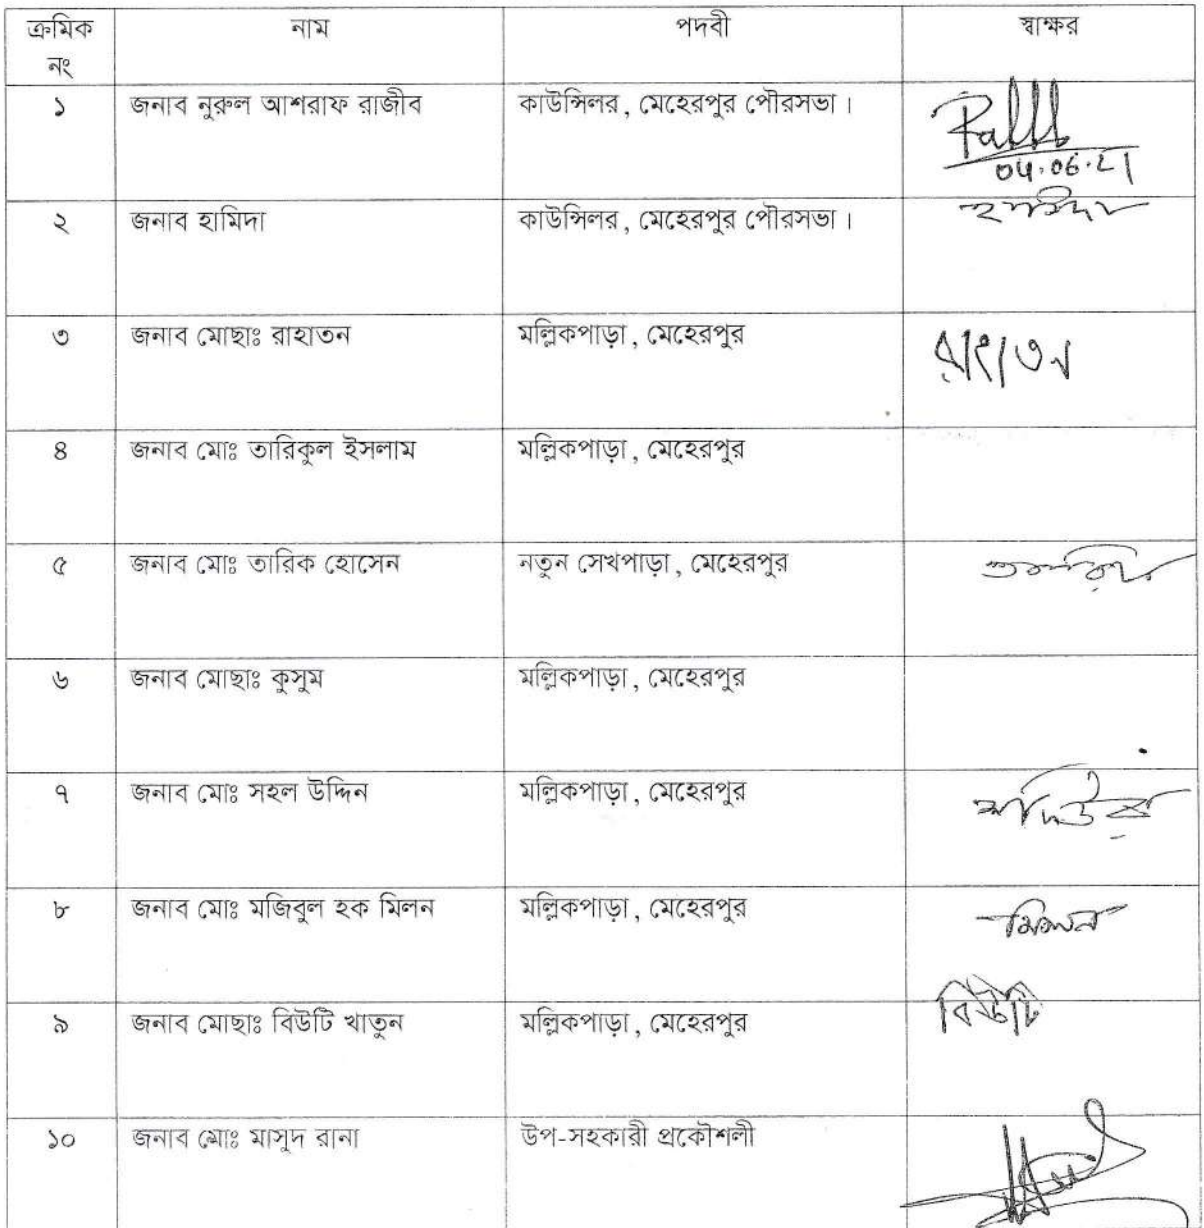 ক্রমিক নং নাম পদবী স্বাক্ষর
১ জনাব নুরুল আশরাফ রাজীব কাউন্সিলর, মেহেরপুর পৌরসভা।
04.06.21
২ জনাব হামিদা কাউন্সিলর, মেহেরপুর পৌরসভা। হামিদা
৩ জনাব মোছাঃ রাহাতন মল্লিকপাড়া, মেহেরপুর রাহাতন
৪ জনাব মোঃ তারিকুল ইসলাম মল্লিকপাড়া, মেহেরপুর
৫ জনাব মোঃ তারিক হোসেন নতুন সেখপাড়া, মেহেরপুর
৬ জনাব মোছাঃ কুসুম মল্লিকপাড়া, মেহেরপুর
৭ জনাব মোঃ সহল উদ্দিন মল্লিকপাড়া, মেহেরপুর
৮ জনাব মোঃ মজিবুল হক মিলন মল্লিকপাড়া, মেহেরপুর মিলন
৯ জনাব মোছাঃ বিউটি খাতুন মল্লিকপাড়া, মেহেরপুর বিউটি
১০ জনাব মোঃ মাসুদ রানা উপ-সহকারী প্রকৌশলী